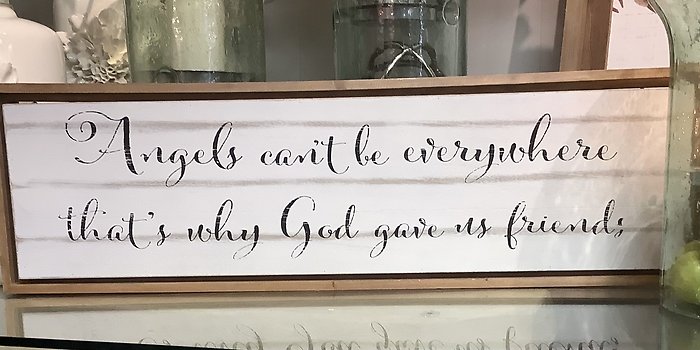 Angels can't be everywhere
that's why God gave us friends